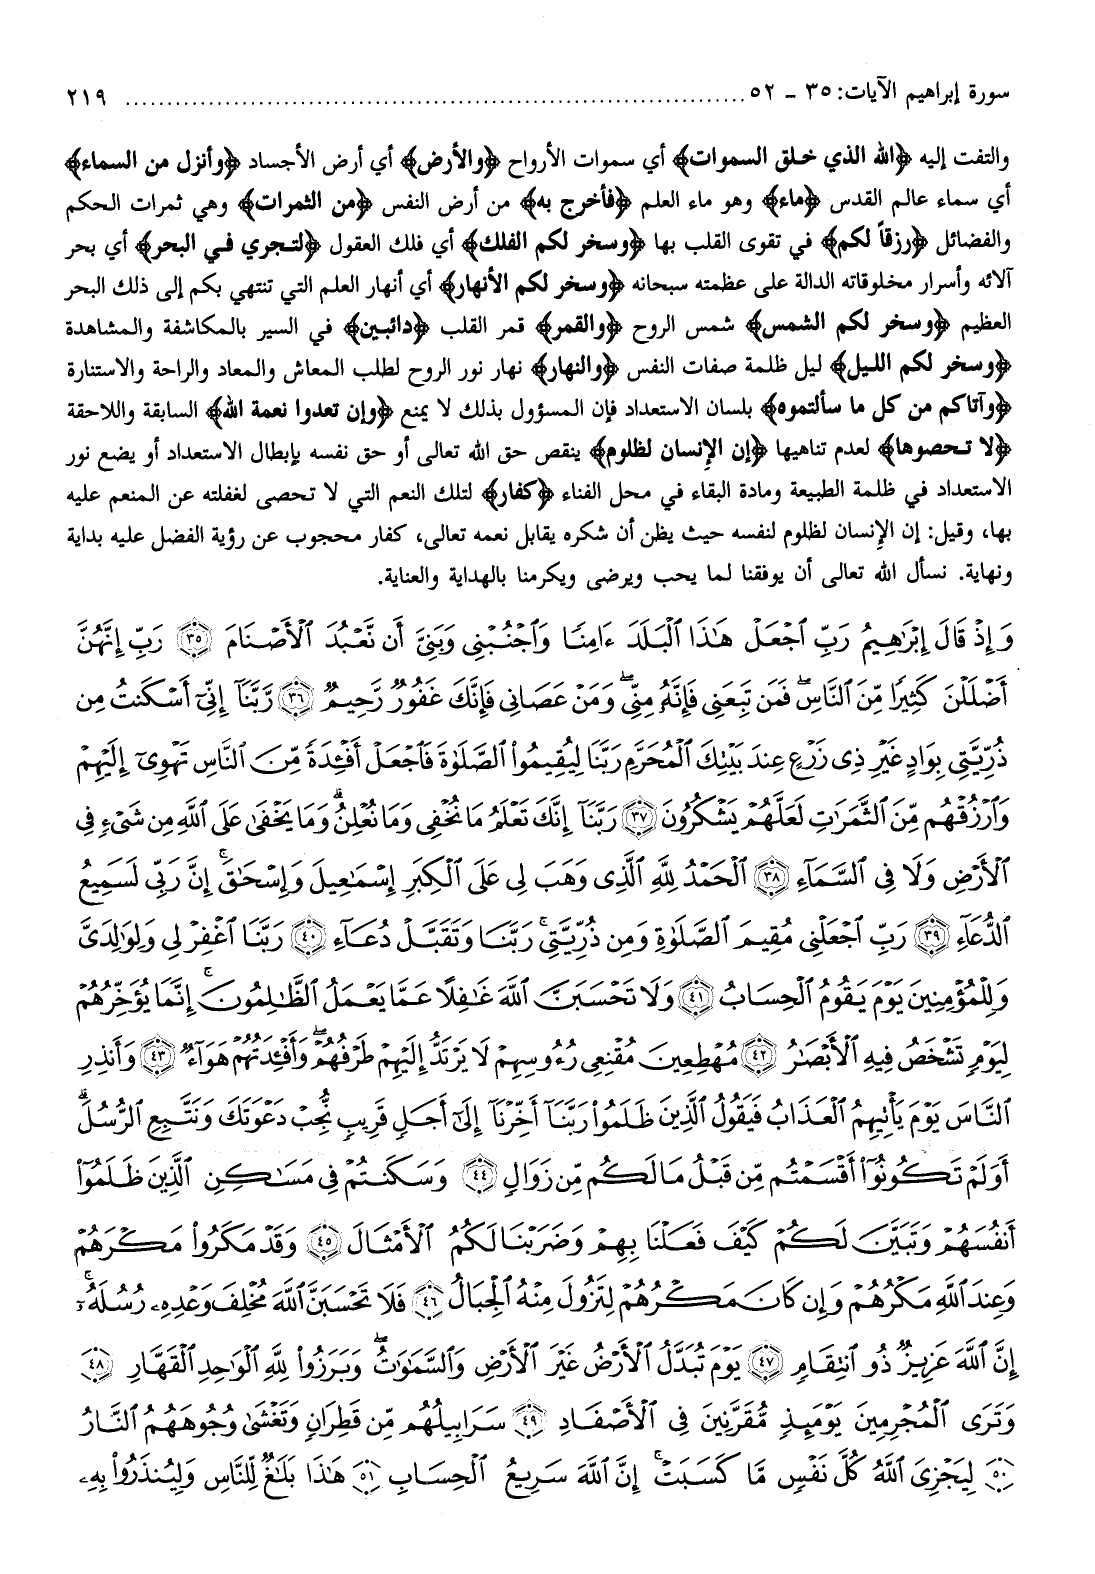 سورة إبراهيم الآيات: ٣٥ - ٥٢ ........................................ ٢١٩
والتفت إليه ﴿الله الذي خلق السموات﴾ أي سموات الأرواح ﴿والأرض﴾ أي أرض الأجساد ﴿وأنزل من السماء﴾
أي سماء عالم القدس ﴿ماء﴾ وهو ماء العلم ﴿فأخرج به﴾ من أرض النفس ﴿من الثمرات﴾ وهي ثمرات الحكم
والفضائل ﴿رزقاً لكم﴾ في تقوى القلب بها ﴿وسخر لكم الفلك﴾ أي فلك العقول ﴿لتجري في البحر﴾ أي بحر
آلائه وأسرار مخلوقاته الدالة على عظمته سبحانه ﴿وسخر لكم الأنهار﴾ أي أنهار العلم التي تنتهي بكم إلى ذلك البحر
العظيم ﴿وسخر لكم الشمس﴾ شمس الروح ﴿والقمر﴾ قمر القلب ﴿دائبين﴾ في السير بالمكاشفة والمشاهدة
﴿وسخر لكم الليل﴾ ليل ظلمة صفات النفس ﴿والنهار﴾ نهار نور الروح لطلب المعاش والمعاد والراحة والاستنارة
﴿وآتاكم من كل ما سألتموه﴾ بلسان الاستعداد فإن المسؤول بذلك لا يمنع ﴿وإن تعدوا نعمة الله﴾ السابقة واللاحقة
﴿لا تحصوها﴾ لعدم تناهيها ﴿إن الإنسان لظلوم﴾ ينقص حق الله تعالى أو حق نفسه بإبطال الاستعداد أو يضع نور
الاستعداد في ظلمة الطبيعة ومادة البقاء في محل الفناء ﴿كفار﴾ لتلك النعم التي لا تحصى لغفلته عن المنعم عليه
بها، وقيل: إن الإنسان لظلوم لنفسه حيث يظن أن شكره يقابل نعمه تعالى، كفار محجوب عن رؤية الفضل عليه بداية
ونهاية. نسأل الله تعالى أن يوفقنا لما يحب ويرضى ويكرمنا بالهداية والعناية.
وَإِذْ قَالَ إِبْرَٰهِيمُ رَبِّ ٱجْعَلْ هَٰذَا ٱلْبَلَدَ ءَامِنًا وَٱجْنُبْنِى وَبَنِىَّ أَن نَّعْبُدَ ٱلْأَصْنَامَ ٣٥ رَبِّ إِنَّهُنَّ
أَضْلَلْنَ كَثِيرًا مِّنَ ٱلنَّاسِ ۖ فَمَن تَبِعَنِى فَإِنَّهُۥ مِنِّى ۖ وَمَنْ عَصَانِى فَإِنَّكَ غَفُورٌ رَّحِيمٌ ٣٦ رَّبَّنَآ إِنِّىٓ أَسْكَنتُ مِن
ذُرِّيَّتِى بِوَادٍ غَيْرِ ذِى زَرْعٍ عِندَ بَيْتِكَ ٱلْمُحَرَّمِ رَبَّنَا لِيُقِيمُوا۟ ٱلصَّلَوٰةَ فَٱجْعَلْ أَفْـِٔدَةً مِّنَ ٱلنَّاسِ تَهْوِىٓ إِلَيْهِمْ
وَٱرْزُقْهُم مِّنَ ٱلثَّمَرَٰتِ لَعَلَّهُمْ يَشْكُرُونَ ٣٧ رَبَّنَآ إِنَّكَ تَعْلَمُ مَا نُخْفِى وَمَا نُعْلِنُ ۗ وَمَا يَخْفَىٰ عَلَى ٱللَّهِ مِن شَىْءٍ فِى
ٱلْأَرْضِ وَلَا فِى ٱلسَّمَآءِ ٣٨ ٱلْحَمْدُ لِلَّهِ ٱلَّذِى وَهَبَ لِى عَلَى ٱلْكِبَرِ إِسْمَٰعِيلَ وَإِسْحَٰقَ ۚ إِنَّ رَبِّى لَسَمِيعُ
ٱلدُّعَآءِ ٣٩ رَبِّ ٱجْعَلْنِى مُقِيمَ ٱلصَّلَوٰةِ وَمِن ذُرِّيَّتِى ۚ رَبَّنَا وَتَقَبَّلْ دُعَآءِ ٤٠ رَبَّنَا ٱغْفِرْ لِى وَلِوَٰلِدَىَّ
وَلِلْمُؤْمِنِينَ يَوْمَ يَقُومُ ٱلْحِسَابُ ٤١ وَلَا تَحْسَبَنَّ ٱللَّهَ غَٰفِلًا عَمَّا يَعْمَلُ ٱلظَّٰلِمُونَ ۚ إِنَّمَا يُؤَخِّرُهُمْ
لِيَوْمٍ تَشْخَصُ فِيهِ ٱلْأَبْصَٰرُ ٤٢ مُهْطِعِينَ مُقْنِعِى رُءُوسِهِمْ لَا يَرْتَدُّ إِلَيْهِمْ طَرْفُهُمْ ۖ وَأَفْـِٔدَتُهُمْ هَوَآءٌ ٤٣ وَأَنذِرِ
ٱلنَّاسَ يَوْمَ يَأْتِيهِمُ ٱلْعَذَابُ فَيَقُولُ ٱلَّذِينَ ظَلَمُوا۟ رَبَّنَآ أَخِّرْنَآ إِلَىٰٓ أَجَلٍ قَرِيبٍ نُّجِبْ دَعْوَتَكَ وَنَتَّبِعِ ٱلرُّسُلَ ۗ
أَوَلَمْ تَكُونُوٓا۟ أَقْسَمْتُم مِّن قَبْلُ مَا لَكُم مِّن زَوَالٍ ٤٤ وَسَكَنتُمْ فِى مَسَٰكِنِ ٱلَّذِينَ ظَلَمُوٓا۟
أَنفُسَهُمْ وَتَبَيَّنَ لَكُمْ كَيْفَ فَعَلْنَا بِهِمْ وَضَرَبْنَا لَكُمُ ٱلْأَمْثَالَ ٤٥ وَقَدْ مَكَرُوا۟ مَكْرَهُمْ
وَعِندَ ٱللَّهِ مَكْرُهُمْ وَإِن كَانَ مَكْرُهُمْ لِتَزُولَ مِنْهُ ٱلْجِبَالُ ٤٦ فَلَا تَحْسَبَنَّ ٱللَّهَ مُخْلِفَ وَعْدِهِۦ رُسُلَهُۥٓ ۗ
إِنَّ ٱللَّهَ عَزِيزٌ ذُو ٱنتِقَامٍ ٤٧ يَوْمَ تُبَدَّلُ ٱلْأَرْضُ غَيْرَ ٱلْأَرْضِ وَٱلسَّمَٰوَٰتُ ۖ وَبَرَزُوا۟ لِلَّهِ ٱلْوَٰحِدِ ٱلْقَهَّارِ ٤٨
وَتَرَى ٱلْمُجْرِمِينَ يَوْمَئِذٍ مُّقَرَّنِينَ فِى ٱلْأَصْفَادِ ٤٩ سَرَابِيلُهُم مِّن قَطِرَانٍ وَتَغْشَىٰ وُجُوهَهُمُ ٱلنَّارُ
٥٠ لِيَجْزِىَ ٱللَّهُ كُلَّ نَفْسٍ مَّا كَسَبَتْ ۚ إِنَّ ٱللَّهَ سَرِيعُ ٱلْحِسَابِ ٥١ هَٰذَا بَلَٰغٌ لِّلنَّاسِ وَلِيُنذَرُوا۟ بِهِۦ